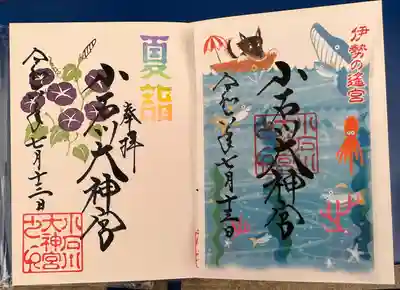 伊勢の遙宮
小石川大神宮
令和 年七月十三日
小石川大神宮
夏詣
奉拝
小石川大神宮
令和 年七月十三日
小石川
大神宮